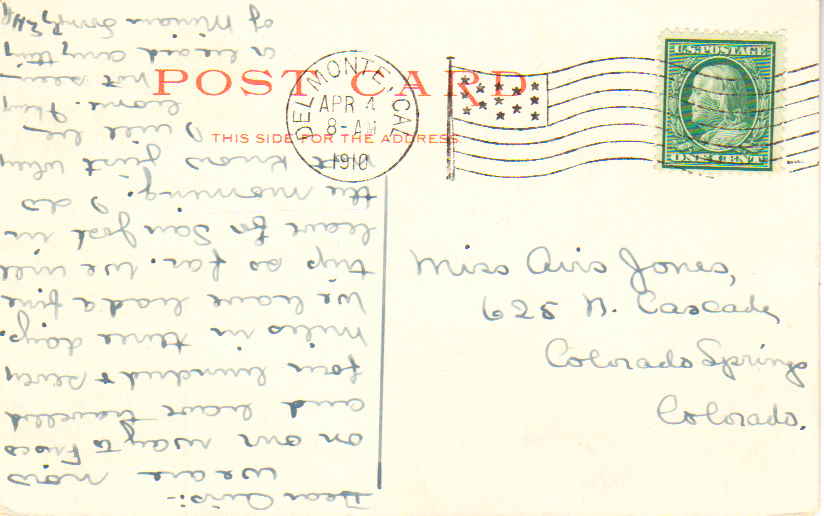 POST CARD
THIS SIDE FOR THE ADDRESS
DEL MONTE, CAL.
APR 4
8-AM
1910
U.S. POSTAGE
ONE CENT
Miss Avis Jones,
625 N. Cascade,
Colorado Springs
Colorado.
Dear Avis:-
we are now
on our way to Frisco
and have travelled
four hundred &
miles in three days.
We have had a fine
trip so far. We will
leave for San Jose in
the morning. I do
not know just when
I will be
home.
not seen
heard any thing
of Miriam